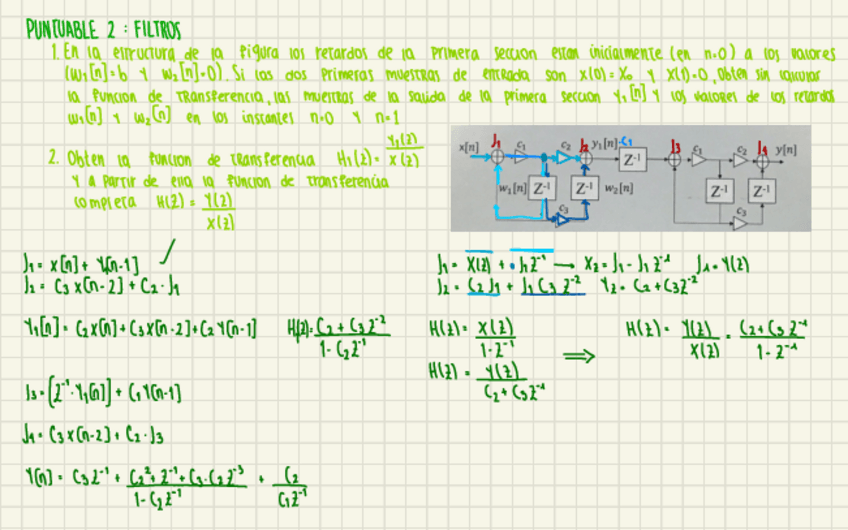 PUNTUABLE 2 : FILTROS
1. En la estructura de la figura los retardos de la primera seccion estan inicialmente (en n=0) a los valores
(w₁[n]=b y w₂[n]=0). Si las dos primeras muestras de entrada son x(0)=X₀ y X(1)=0, obten sin calcular
la funcion de transferencia, las muestras de la salida de la primera seccion y₁[n] y los valores de los retardos
w₁[n] y w₂[n] en los instantes n=0 y n=1
2. Obten la funcion de transferencia H₁(z)= Y₁(z)/X(z)
y a partir de ella la funcion de transferencia
completa H(z)= Y(z)/X(z)
x[n] J₁ c₁ c₂ J₂ y₁[n] -c₁ Z⁻¹ J₃ c₁ c₂ J₄ y[n]
w₁[n] Z⁻¹ Z⁻¹ w₂[n] Z⁻¹ Z⁻¹
c₃ c₃
J₁= x[n]+ Y[n-1] ✓
J₂= C₃ X[n-2] + C₂·J₁
J₁= X(z) + · J₁z⁻¹ → X₂= J₁ - J₁ z⁻¹ J₂= Y(z)
J₂= C₂J₁ + J₁C₃ z⁻² Y₂= C₂+C₃z⁻²
Y₁[n]= C₂X[n]+C₃X[n-2]+C₂Y[n-1] H₁(z)= C₂+C₃z⁻²/1-C₂z⁻¹
H(z)= X(z)/1-z⁻¹
H(z)= Y(z)/C₂+C₃z⁻¹
⟹ H(z)= Y(z)/X(z) = C₂+C₃z⁻¹/1-z⁻¹
J₃= [z⁻¹·Y₁[n]] + C₁Y[n-1]
J₄= C₃X[n-2] + C₂·J₃
Y[n]= C₃z⁻¹ + C₂²+z⁻¹+C₃·C₂z⁻³/1-C₂z⁻¹ + C₂/C₁z⁻¹